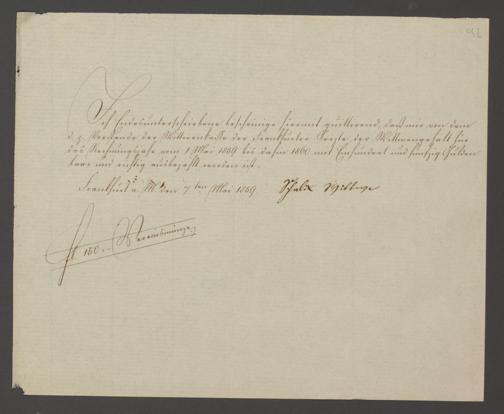 92
Ich Endesunterschriebene bescheinige hiermit quittirend, daß mir von dem
d. z. Vorstande der Wittwenkasse der Frankfurter Aerzte der Wittwengehalt für
das Rechnungsjahr vom 1 Mai 1859 bis dahin 1860 mit Einhundert und fünfzig Gulden
baar und richtig ausbezahlt worden ist.
Frankfurt a. M. den 7 ten Mai 1859
fl 150 – Vereinsmünze.